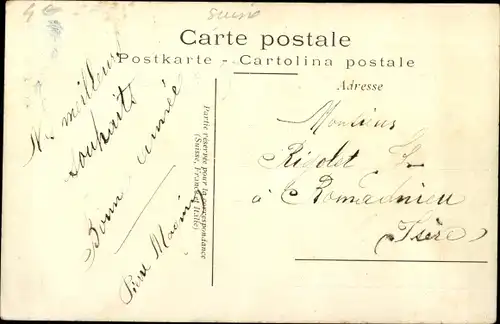 Suisse
Carte postale
Postkarte - Cartolina postale
Adresse
Partie réservée pour la correspondance
(Suisse, France et Italie)
Ns meilleurs
souhaits
Bonne année
Pierre
Monsieur
Rigolet
à Romagnieu
(Isère)